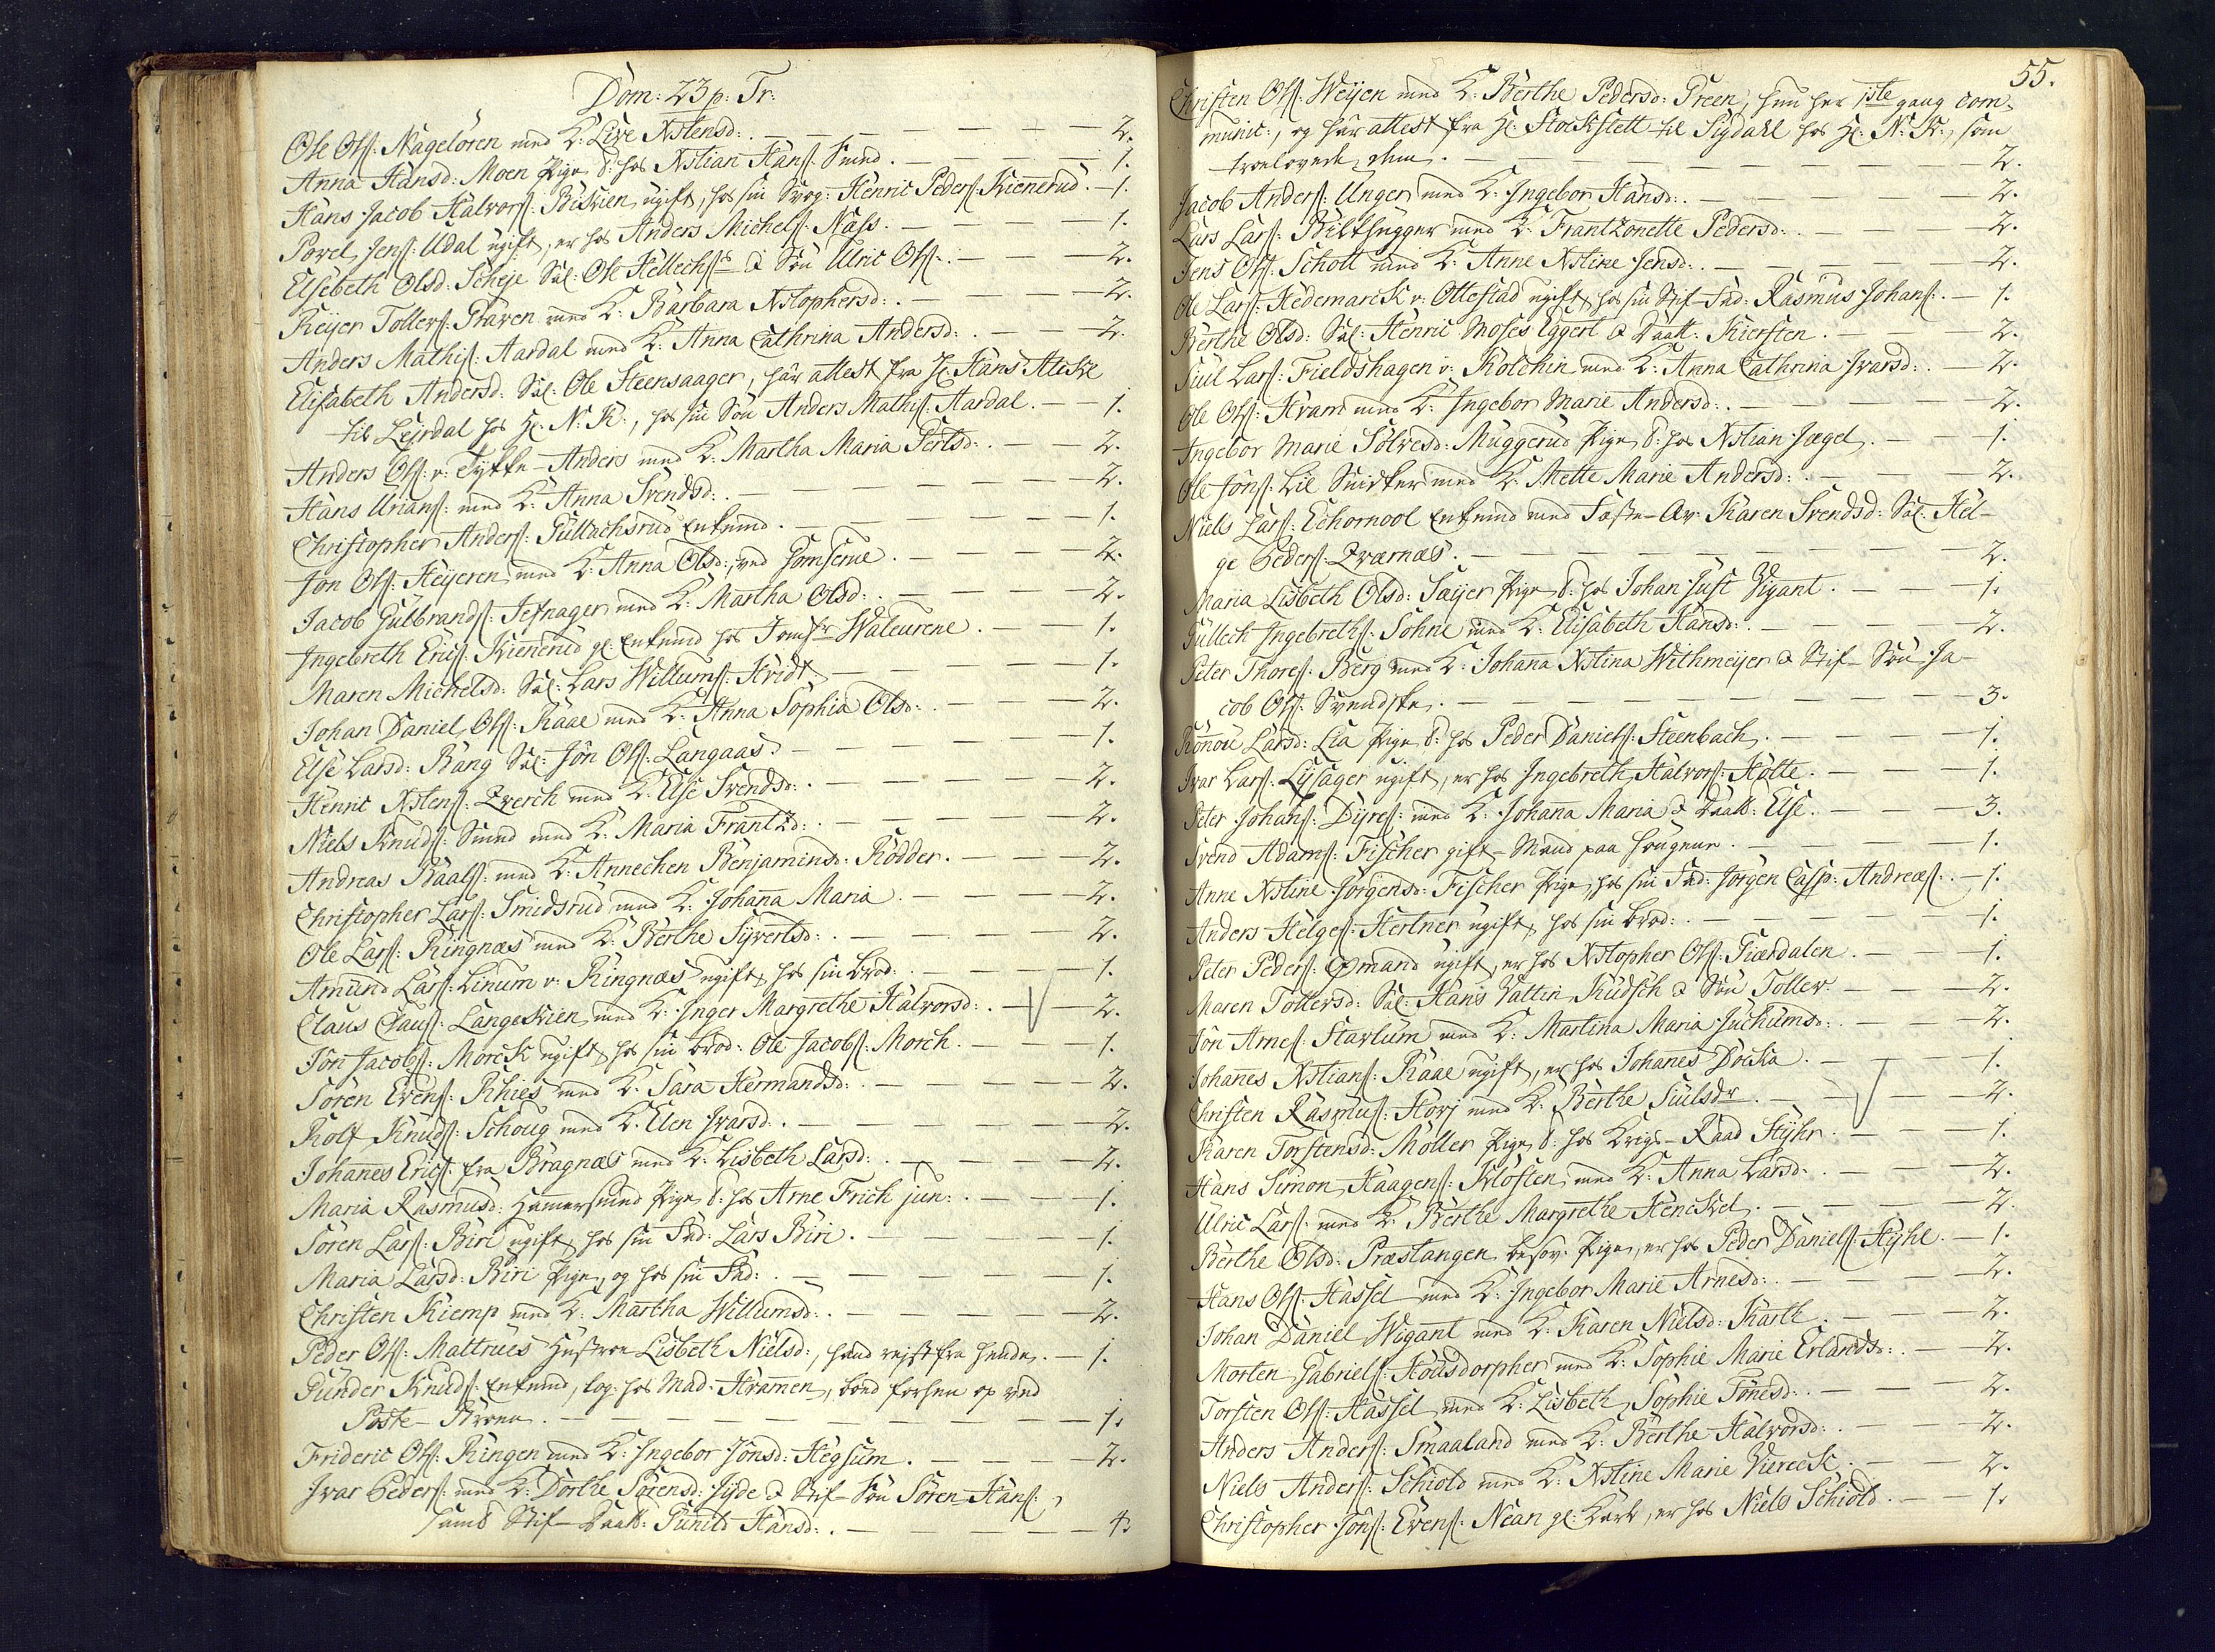 Dom: 23 p: Tr:
Ole Ols: Nageløren med K: Live Xstensd: . — — — — — 2.
Anna Hansd: Moen Pige, d: hos Xstian Hans: Smed. — — — 1.
Hans Jacob Halvors: Biskien ugift, hos sin Svog: Henric Peders: Kiennerud. — 1.
Povel Jens: Udal ugift, er hos Anders Michels: Næss. — — — 1.
Elsebeth Olsd: Scheje Sal: Ole Hellechs: & Søn Ulric Ols: . — — 2.
Reijer Tollers: Graven med K: Barbara Xstophersd: . — — — 2.
Anders Mathis: Aardal med K: Anna Cathrina Andersd: . — — 2.
Elisabeth Andersd: Sal: Ole Steensaager, har attest fra Hr: Hans Aleske
til Leirdal hos Hr: N: K:, hos sin Søn Anders Mathis: Aardal. — 1.
Anders Ols: v: Tykke-Anders med K: Martha Maria Perlsd: . — — 2.
Hans Urians: med K: Anna Svendsd: . — — — — — 2.
Christopher Anders: Gullachsrud Enkemd. — — — — 1.
Jon Ols: Heijeren med K: Anna Olsd:, ved Jomfrue. — — — 2.
Jacob Gulbrands: Jefnager med K: Martha Olsd: . — — — 2.
Ingebreth Erics: Kiennerud gl: Enkemd hos Jomfr Waleurene. — — 1.
Maren Michelsd: Sal: Lars Willums: Hvidt — — — — 1.
Johan Daniel Ols: Raae med K: Anna Sophia Olsd: . — — — 2.
Else Larsd: Bang Sal: Jón Ols: Langaas. — — — — 1.
Henric Xstens: Qverch med K: Else Svendsd: . — — — 2.
Niels Knuds: Smed med K: Maria Frantzd: . — — — — 2.
Andreas Baals: med K: Annechen Benjaminsd: Rødder. — — — 2.
Christopher Lars: Smidsrud med K: Johana Maria. — — — 2.
Ole Lars: Ringnæs med K: Berthe Syvertsd: . — — — — 2.
Amund Lars: Linum v: Ringnæs ugift, hos sin brod: . — — — 1.
Claus Claus: Langeskien med K: Inger Margrethe Halvorsd: . — — 2.
Jón Jacobs: Morck ugift, hos sin brod: Ole Jacobs: Morch. — — — 1.
Søren Evens: Rhies med K: Sara Hermandsd: . — — — — 2.
Rolf Knuds: Schoug med K: Elen Ivarsd: . — — — — 2.
Johannes Erics: fra Bragnæs med K: Lisbeth Larsd: . — — — 2.
Maria Rasmusd: Hammersmed Pige d: hos Arne Frich jun: . — — — 1.
Søren Lars: Biri ugift, hos sin Fad: Lars Biri. — — — — 1.
Maria Larsd: Biri Pige, og hos sin Fad: . — — — — 1.
Christen Kiemp med K: Martha Willumsd: . — — — — 2.
Peder Ols: Mattrues Hustroe Lisbeth Nielsd:, hand rejst fra hende. — 1.
Gunder Knuds: Enkemd, log: hos Mad: Hramen, boed forhen op ved
Poste-Brøen. — — — — — — — 1.
Frideric Ols: Ringen med K: Ingebor Jónsd: Hegsum. — — — 2.
Ivar Peders: med K: Dorthe Sørensd: Jyde & Stif-Søn Søren Hans:,
samt Stif-Daatt: Gunild Hansd: . — — — — — 4.
55.
Christen Ols: Weijen med K: Berthe Pedersd: Green, hun her 1ste gang com-
munic:, og har attest fra Hr: Stockflett til Sigdahl hos Hr: N: K:, som
troelovede dem. — — — — — — — 2.
Jacob Anders: Unger med K: Ingebor Hansd: . — — — — 2.
Lars Lars: Biltsugger med K: Frantzonette Pedersd: . — — — 2.
Jens Ols: Schott med K: Anne Xstine Jensd: . — — — — 2.
Ole Lars: Hedemarck v: Ottestad ugift, hos sin Stif-Fad: Rasmus Johans: . — 1.
Berthe Olsd: Sal: Henric Moses Eggert & Daatt: Kiersten. — — 2.
Juul Lars: Fieldshagen v: Kolchin med K: Anna Cathrina Ivarsd: . — 2.
Ole Ols: Hram med K: Ingebor Marie Andersd: . — — — — 2.
Ingebor Marie Sølvesd: Muggerud Pige d: hos Xstian Jægel. — — 1.
Ole Jóns: Lie Snidker med K: Mette Marie Andersd: . — — — 2.
Niels Lars: Echornool Enkemd med Fæste-Qv: Karen Svendsd: Sal: Hel-
ge Peders: Qværnæs. — — — — — — — 2.
Maria Lisbeth Olsd: Sæijer Pige d: hos Johan Just Wigant. — — 1.
Gullech Ingebreths: Søhne med K: Elisabeth Hansd: . — — — 2.
Peter Thores: Berg med K: Johana Xstina Withmeijer & Stif-Søn Ja-
cob Ols: Svendske. — — — — — — 3.
Rønou Larsd: Lia Pige d: hos Peder Daniels: Steenbach. — — — 1.
Ivar Lars: Lysager ugift, er hos Ingebreth Halvors: Holte. — — — 1.
Peter Johans: Dyres: med K: Johana Maria & Daatt: Else. — — 3.
Svend Adams: Fischer gift-Mand paa Haugene. — — — — 1.
Anne Xstine Jørgensd: Fischer Pige, hos sin Fad: Jørgen Casp: Andreæs: . — 1.
Anders Helges: Hertner ugift, hos sin brod: . — — — — 1.
Peter Peders: Ømand ugift, er hos Xstopher Ols: Fiærdalen. — — 1.
Maren Tollersd: Sal: Hans Vattin Kudsch & Søn Toller. — — — 2.
Jón Arnes: Stavlum med K: Martina Maria Juchumsd: . — — — 2.
Johannes Xstians: Raae ugift, er hos Johannes Docka. — — — 1.
Christen Rasmus: Horj med K: Berthe Juulsdr. — — — — 2.
Karen Torstensd: Møller Pige d: hos Krigs-Raad Styhr. — — — 1.
Hans Simon Haagens: Kloften med K: Anna Larsd: . — — — 2.
Ulric Lars: med K: Berthe Margrethe Henckel. — — — — 2.
Berthe Olsd: Præstangen besov: Pige, er hos Peder Daniels: Hyhl. — 1.
Hans Ols: Hassel med K: Ingebor Marie Arnesd: . — — — 2.
Johan Daniel Wigant med K: Karen Nielsd: Karth. — — — 2.
Morten Gabriels: Housdorpher med K: Sophie Marie Erlandsd: . — — 2.
Torsten Ols: Hassel med K: Lisbeth Sophie Tønesd: . — — — 2.
Anders Anders: Smaaland med K: Berthe Halvorsd: . — — — 2.
Niels Anders: Schiold med K: Xstine Marie Viereck. — — — 2.
Christopher Jóns: Evens: Nean gl: Karl, er hos Niels Schiold. — — 1.